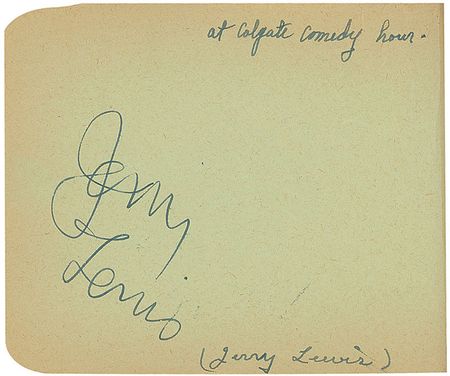 at Colgate comedy hour.
Jerry
Lewis
(Jerry Lewis)